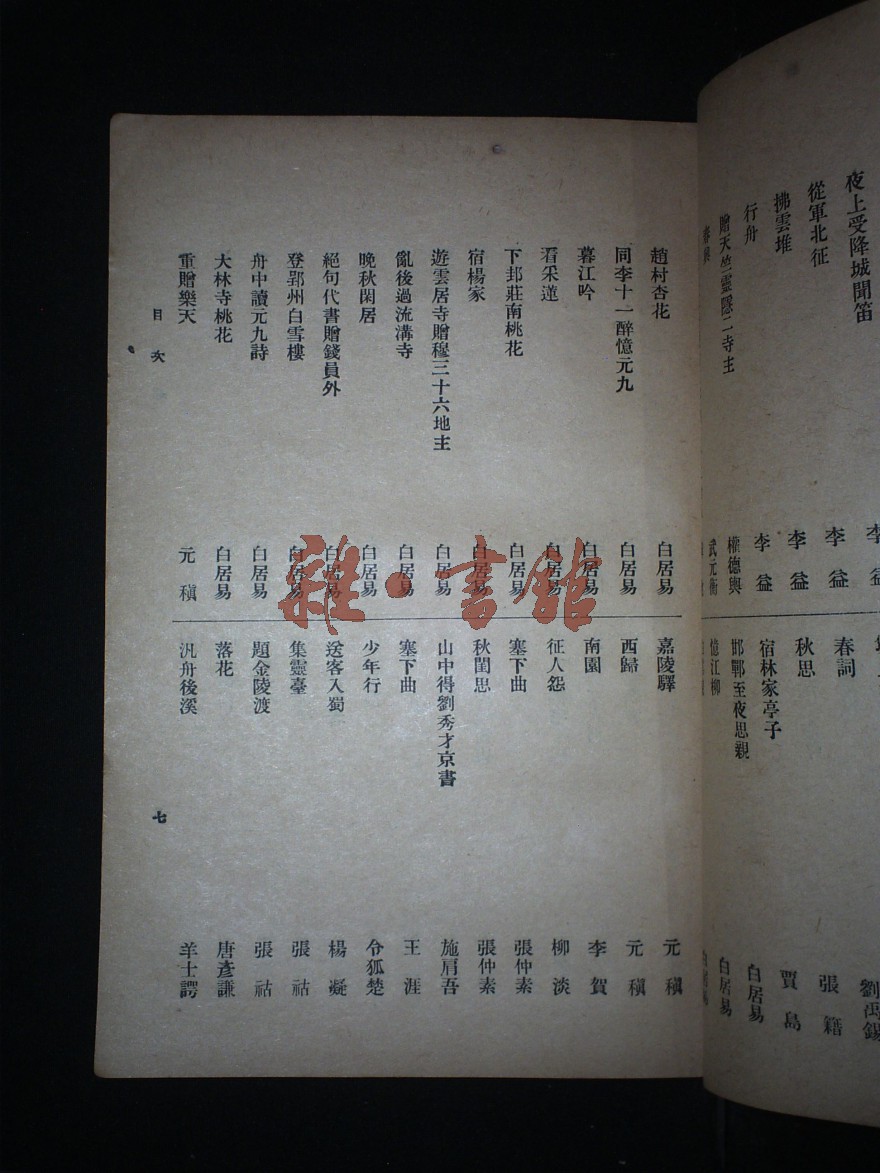 夜上受降城聞笛 李益
從軍北征 李益
拂雲堆 李益
行舟 李益
贈天竺靈隱二寺主 權德輿
武元衡
劉禹錫
春詞 張籍
秋思 賈島
宿林家亭子 白居易
邯鄲至夜思親 白居易
憶江柳
趙村杏花 白居易
同李十一醉憶元九 白居易
暮江吟 白居易
看采蓮 白居易
下邽莊南桃花 白居易
宿楊家 白居易
遊雲居寺贈穆三十六地主 白居易
亂後過流溝寺 白居易
晚秋閑居 白居易
絕句代書贈錢員外 白居易
登郢州白雪樓 白居易
舟中讀元九詩 白居易
大林寺桃花 白居易
重贈樂天 元稹
嘉陵驛 元稹
西歸 元稹
南園 李賀
征人怨 柳淡
塞下曲 張仲素
秋閨思 張仲素
山中得劉秀才京書 施肩吾
塞下曲 王涯
少年行 令狐楚
送客入蜀 楊凝
集靈臺 張祜
題金陵渡 張祜
落花 唐彥謙
汎舟後溪 羊士諤
目次
七
雜·書館